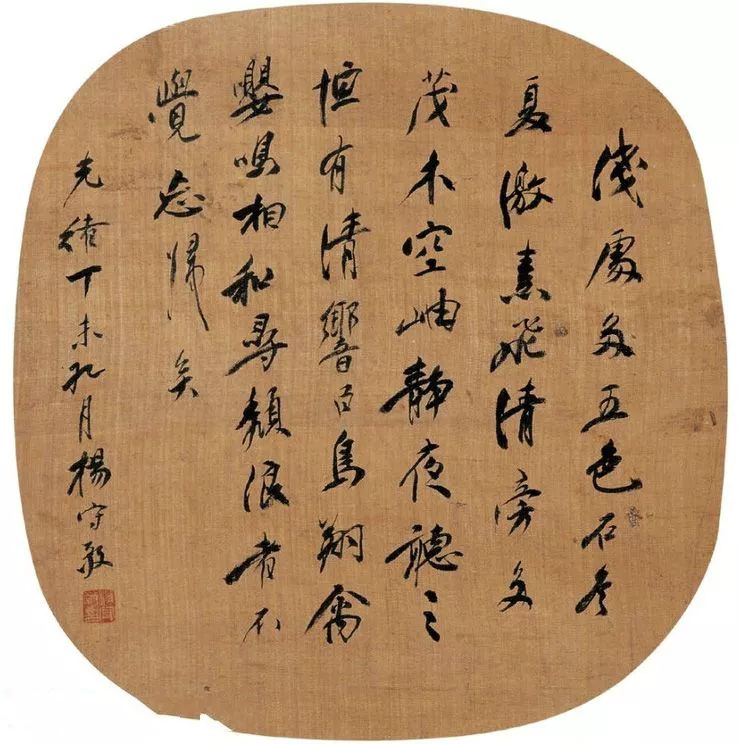 淺處多五色石冬
夏激素飛清旁多
茂木空岫靜夜聽之
恒有清響百鳥翔禽
嚶鳴相和尋頹浪者不
覺忘歸矣
光緒丁未九月楊守敬